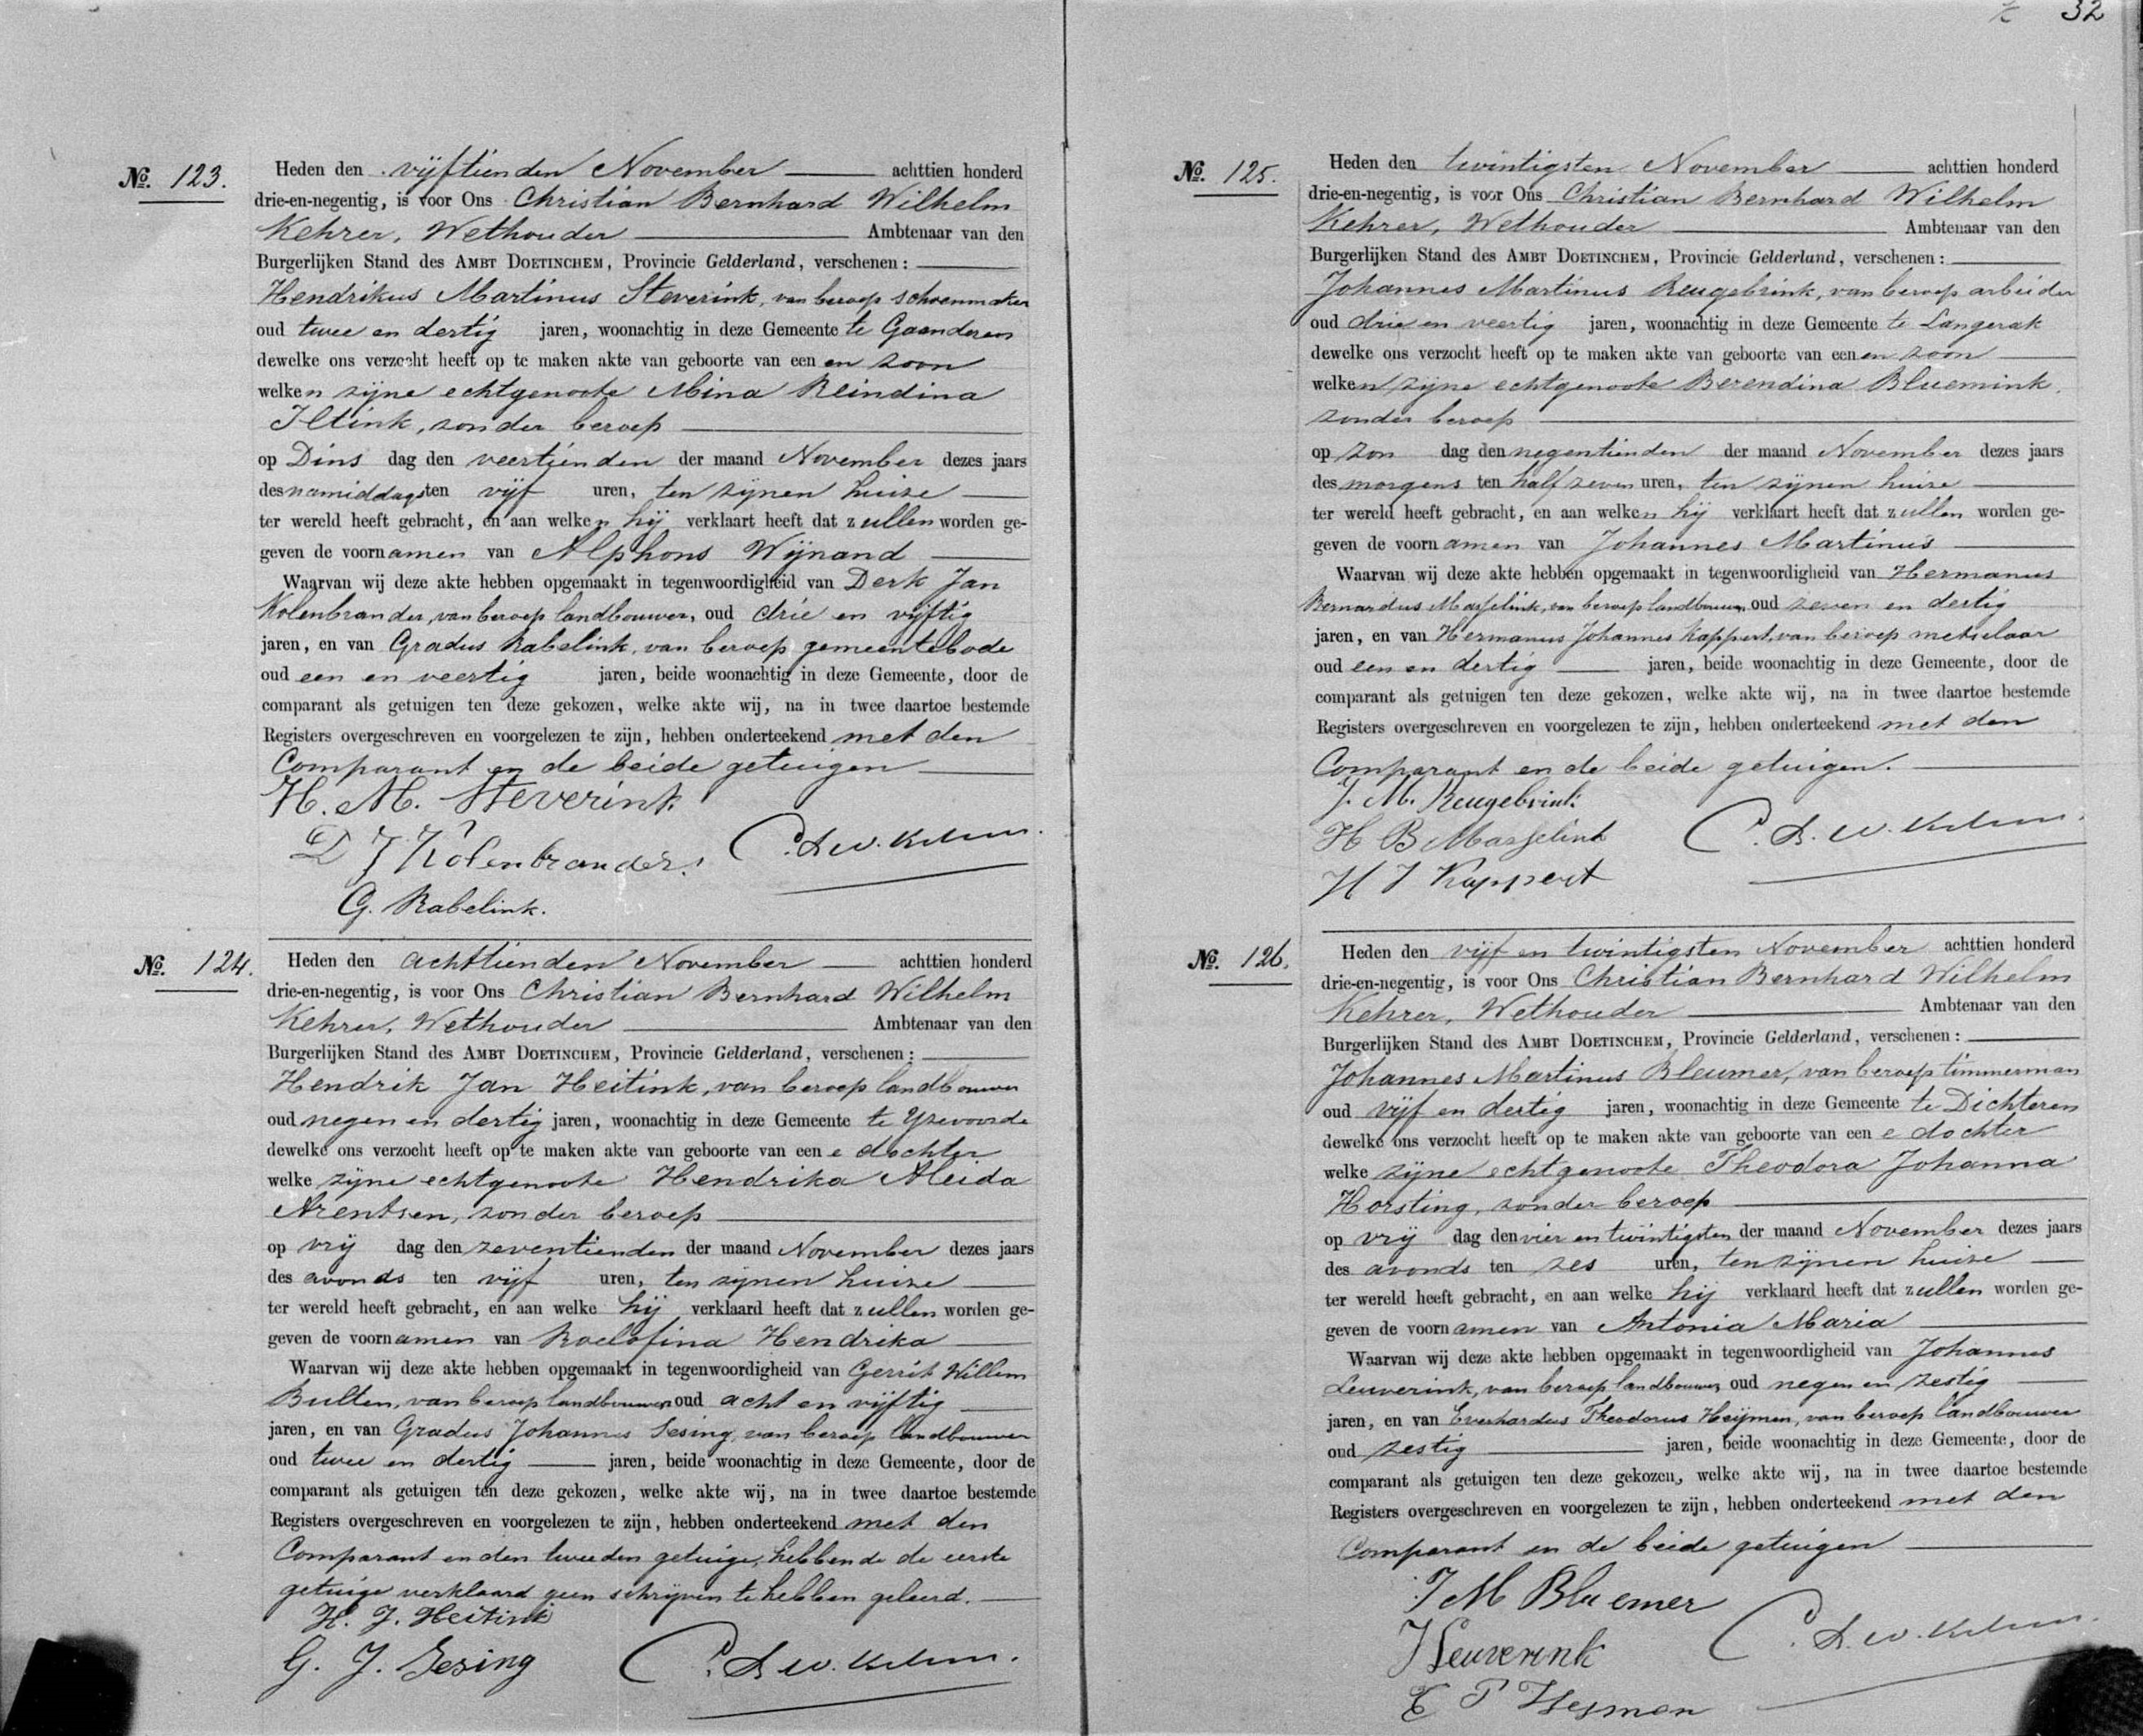 №. 123.
Heden den vijftienden November achttien honderd
drie-en-negentig, is voor Ons Christian Bernhard Wilhelm
Kehrer, Wethouder Ambtenaar van den
Burgerlijken Stand des AMBT DOETINCHEM, Provincie Gelderland, verschenen:
Hendrikus Martinus Steverink, van beroep schoenmaker
oud twee en dertig jaren, woonachtig in deze Gemeente te Gaanderen
dewelke ons verzocht heeft op te maken akte van geboorte van een en zoon
welken zijne echtgenoote Mina Reindina
Iltink, zonder beroep
op Dins dag den veertienden der maand November dezes jaars
des namiddags ten vijf uren, ten zijnen huize
ter wereld heeft gebracht, en aan welken hij verklaart heeft dat zullen worden ge-
geven de voornamen van Alphons Wijnand
Waarvan wij deze akte hebben opgemaakt in tegenwoordigheid van Derk Jan
Kolenbrander, van beroep landbouwer, oud drie en vijftig
jaren, en van Gradus Rabelink, van beroep gemeentebode
oud een en veertig jaren, beide woonachtig in deze Gemeente, door de
comparant als getuigen ten deze gekozen, welke akte wij, na in twee daartoe bestemde
Registers overgeschreven en voorgelezen te zijn, hebben onderteekend met den
Comparant en de beide getuigen
H. M. Steverink
D J Kolenbrander.
C. B. W. Kehrer.
G. Rabelink.
№. 124.
Heden den achttienden November achttien honderd
drie-en-negentig, is voor Ons Christian Bernhard Wilhelm
Kehrer, Wethouder Ambtenaar van den
Burgerlijken Stand des AMBT DOETINCHEM, Provincie Gelderland, verschenen:
Hendrik Jan Heitink, van beroep landbouwer
oud negen en dertig jaren, woonachtig in deze Gemeente te Yzevoorde
dewelke ons verzocht heeft op te maken akte van geboorte van een e dochter
welke zijne echtgenoote Hendrika Aleida
Arentsen, zonder beroep
op vrij dag den zeventienden der maand November dezes jaars
des avonds ten vijf uren, ten zijnen huize
ter wereld heeft gebracht, en aan welke hij verklaard heeft dat zullen worden ge-
geven de voornamen van Roelofina Hendrika
Waarvan wij deze akte hebben opgemaakt in tegenwoordigheid van Gerrit Willem
Bulten, van beroep landbouwer oud acht en vijftig
jaren, en van Gradus Johannes Sesing, van beroep landbouwer
oud twee en dertig jaren, beide woonachtig in deze Gemeente, door de
comparant als getuigen ten deze gekozen, welke akte wij, na in twee daartoe bestemde
Registers overgeschreven en voorgelezen te zijn, hebben onderteekend met den
Comparant en den tweeden getuige, hebbende de eerste
getuige verklaard geen schrijven te hebben geleerd.
H. J. Heitink
G. J. Sesing
C. B. W. Kehrer.
32
№. 125.
Heden den twintigsten November achttien honderd
drie-en-negentig, is voor Ons Christian Bernhard Wilhelm
Kehrer, Wethouder Ambtenaar van den
Burgerlijken Stand des AMBT DOETINCHEM, Provincie Gelderland, verschenen:
Johannes Martinus Reugebrink, van beroep arbeider
oud drie en veertig jaren, woonachtig in deze Gemeente te Langerak
dewelke ons verzocht heeft op te maken akte van geboorte van een en zoon
welken zijne echtgenoote Berendina Bluemink,
zonder beroep
op zon dag den negentienden der maand November dezes jaars
des morgens ten half zeven uren, ten zijnen huize
ter wereld heeft gebracht, en aan welken hij verklaart heeft dat zullen worden ge-
geven de voornamen van Johannes Martinus
Waarvan wij deze akte hebben opgemaakt in tegenwoordigheid van Hermanus
Bernardus Masselink, van beroep landbouwer, oud zeven en dertig
jaren, en van Hermanus Johannes Kappert, van beroep metselaar
oud een en dertig jaren, beide woonachtig in deze Gemeente, door de
comparant als getuigen ten deze gekozen, welke akte wij, na in twee daartoe bestemde
Registers overgeschreven en voorgelezen te zijn, hebben onderteekend met den
Comparant en de beide getuigen.
J. M. Reugebrink
H B Masselink
C. B. W. Kehrer.
H J Kappert
№. 126.
Heden den vijf en twintigsten November achttien honderd
drie-en-negentig, is voor Ons Christian Bernhard Wilhelm
Kehrer, Wethouder Ambtenaar van den
Burgerlijken Stand des AMBT DOETINCHEM, Provincie Gelderland, verschenen:
Johannes Martinus Bleumer, van beroep timmerman
oud vijf en dertig jaren, woonachtig in deze Gemeente te Dichteren
dewelke ons verzocht heeft op te maken akte van geboorte van een e dochter
welke zijne echtgenoote Theodora Johanna
Horsting, zonder beroep
op vrij dag den vier en twintigsten der maand November dezes jaars
des avonds ten zes uren, ten zijnen huize
ter wereld heeft gebracht, en aan welke hij verklaard heeft dat zullen worden ge-
geven de voornamen van Antonia Maria
Waarvan wij deze akte hebben opgemaakt in tegenwoordigheid van Johannes
Leuverink, van beroep landbouwer, oud negen en zestig
jaren, en van Everhardus Theodorus Heijmen, van beroep landbouwer
oud zestig jaren, beide woonachtig in deze Gemeente, door de
comparant als getuigen ten deze gekozen, welke akte wij, na in twee daartoe bestemde
Registers overgeschreven en voorgelezen te zijn, hebben onderteekend met den
Comparant en de beide getuigen
J M Bluemer
C. B. W. Kehrer.
J Leuverink
E T Hesmen